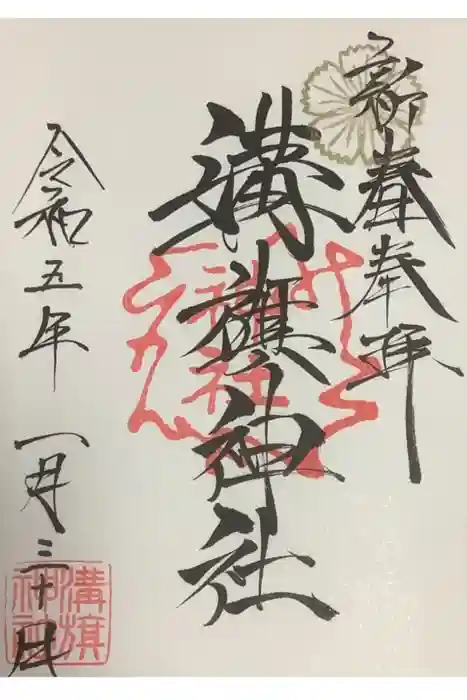 新春奉拝
溝旗神社
令和五年 一月三十日
溝旗
神社